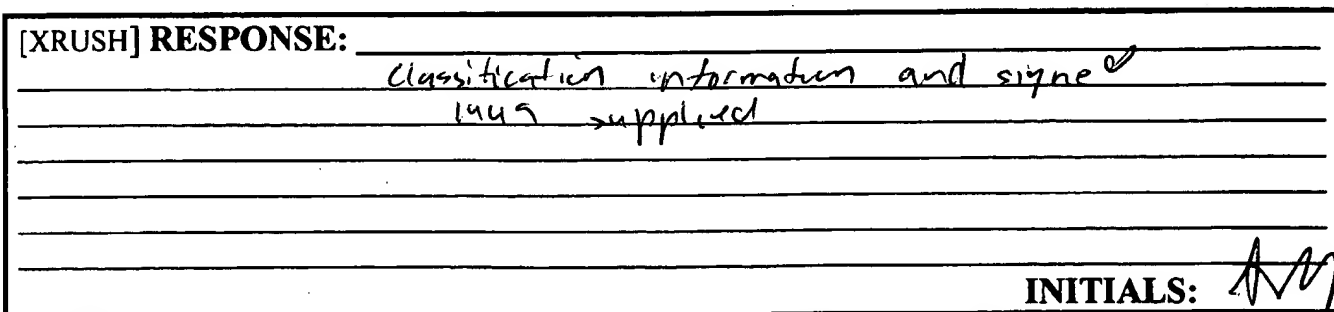 [XRUSH] RESPONSE:
Classification information and signed
1449 supplied
INITIALS: